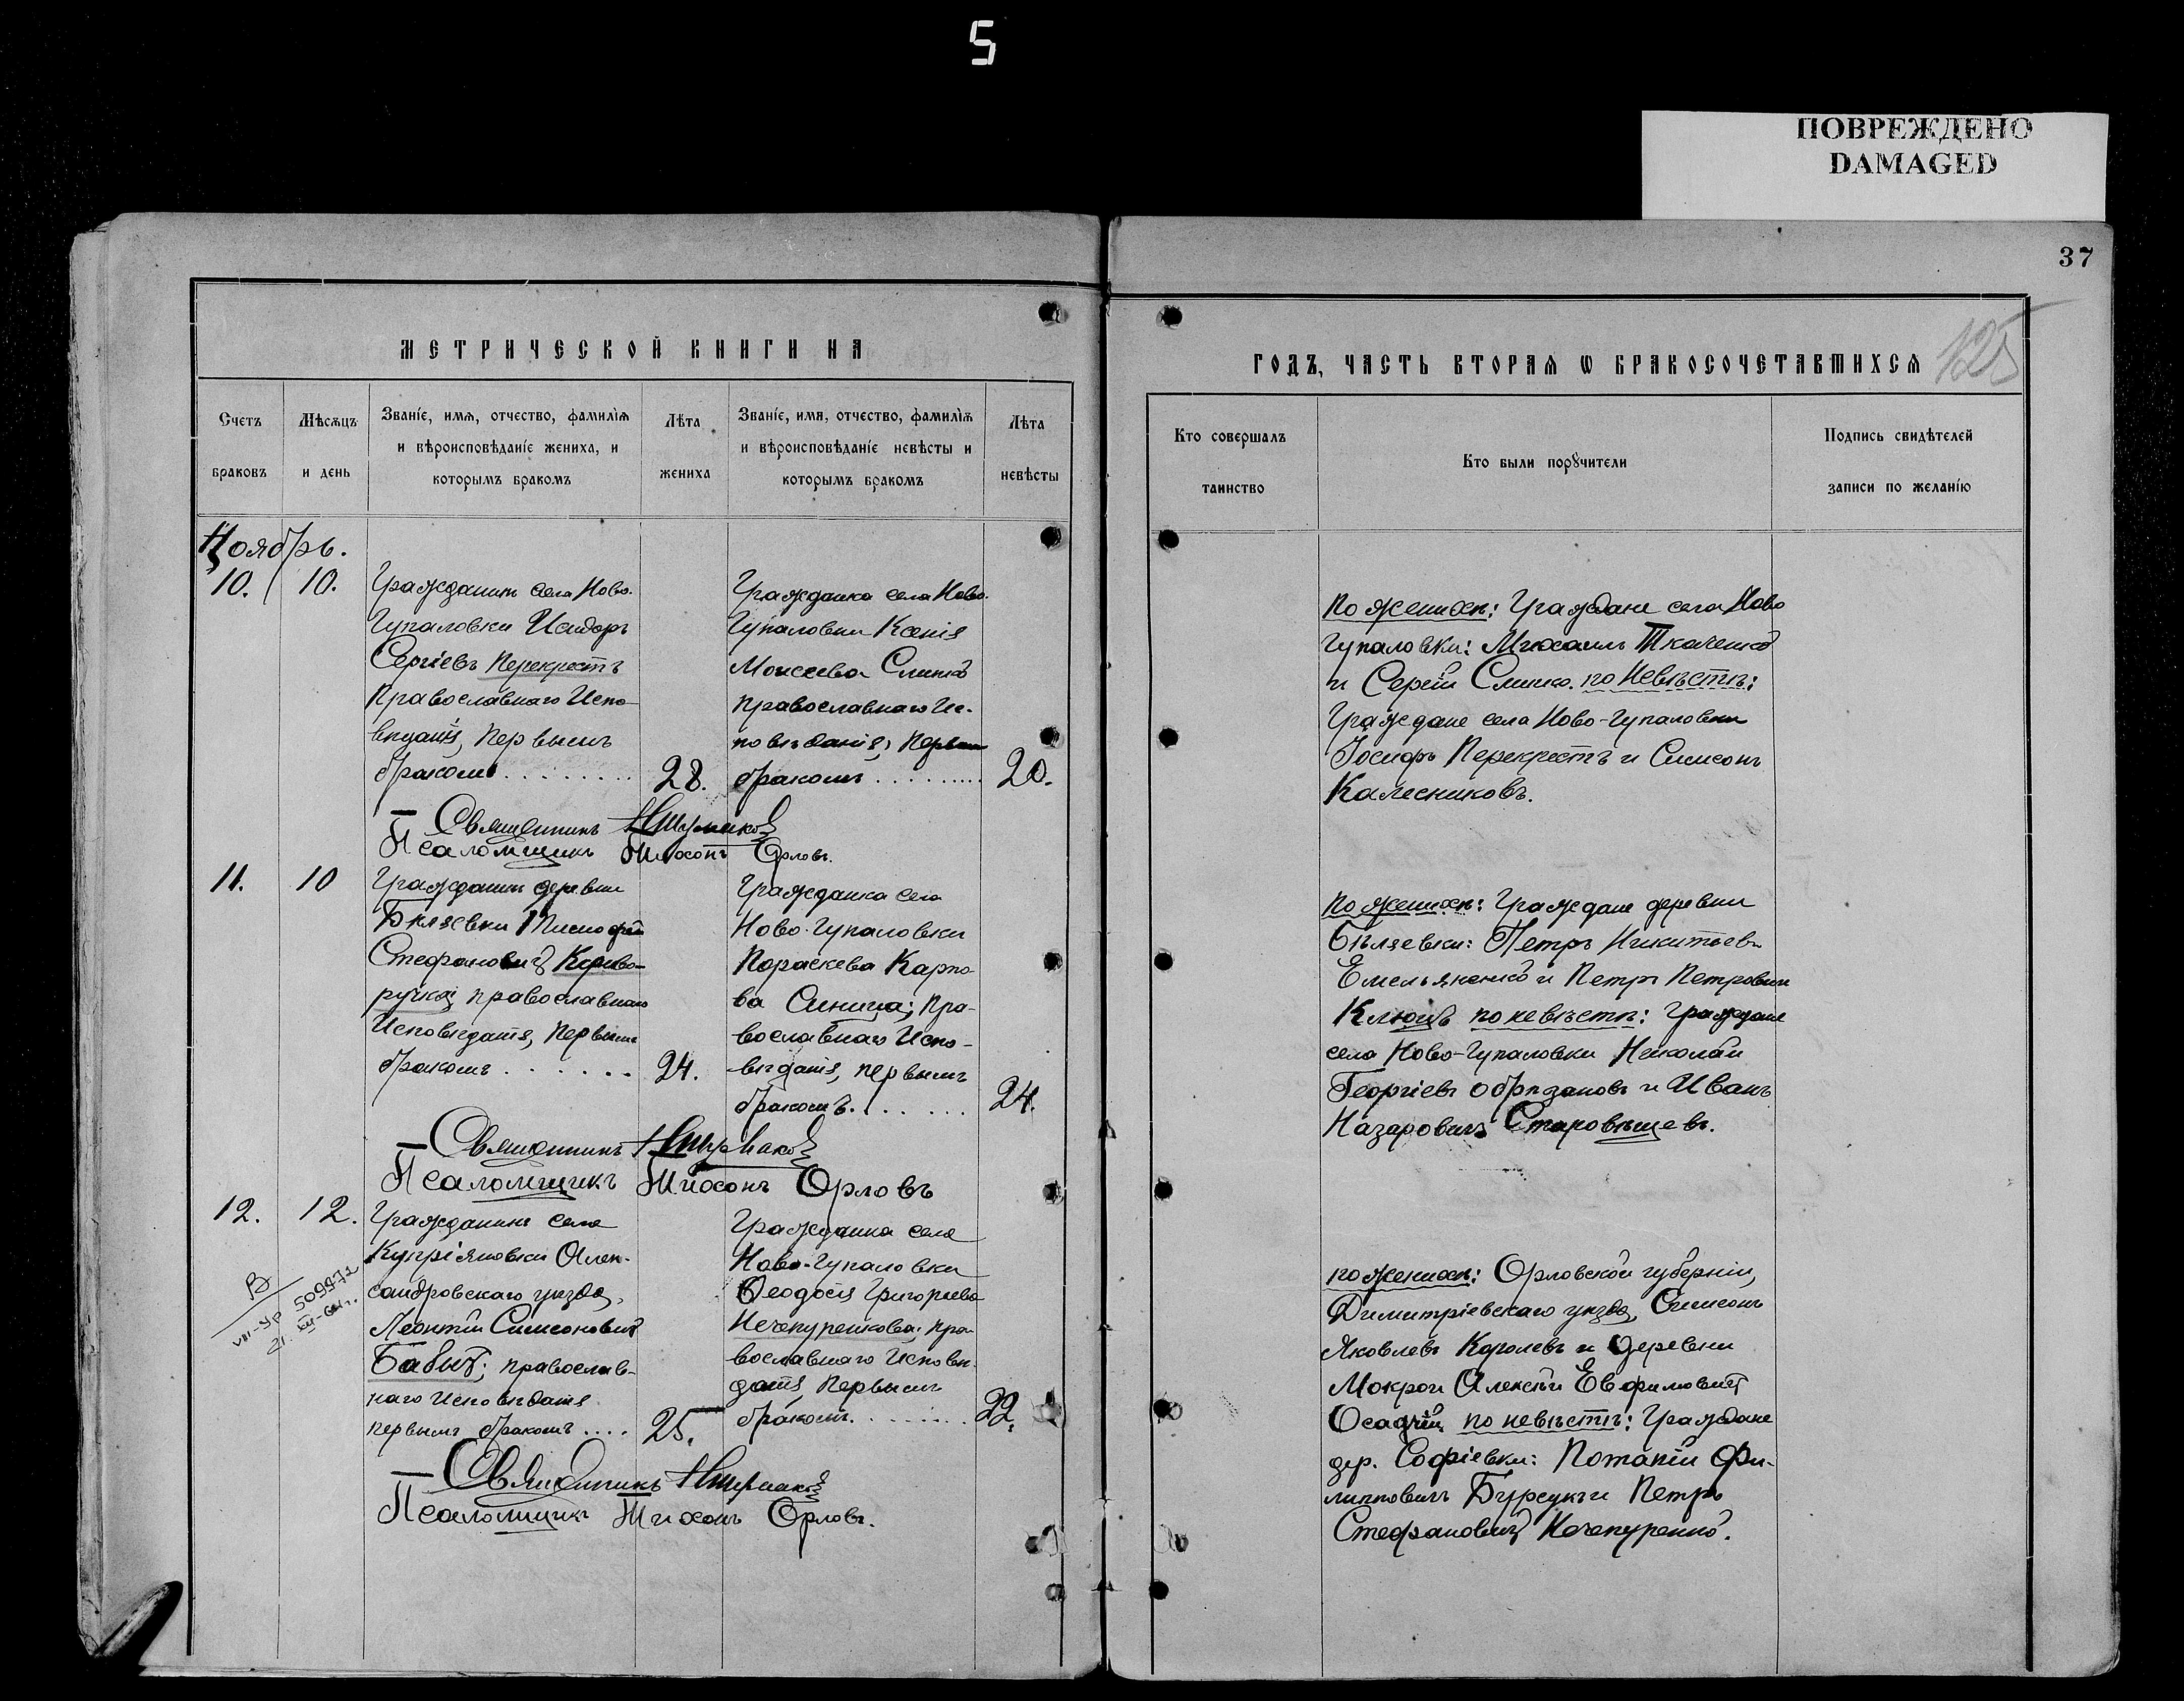 5
ПОВРЕЖДЕНО
DAMAGED
37
125
МЕТРИЧЕСКОЙ КНИГИ НА
Счетъ браковъ
Мѣсяцъ и день
Званіе, имя, отчество, фамилія
и вѣроисповѣданіе жениха, и
которымъ бракомъ
Лѣта жениха
Званіе, имя, отчество, фамилія
и вѣроисповѣданіе невѣсты и
которымъ бракомъ
Лѣта невѣсты
Ноябрь.
10. 10.
Гражданинъ села Ново-
Гупаловки Исидоръ
Сергіевъ Перекрестъ
Православнаго Испо-
вѣданія, Первымъ
бракомъ ........ 28.
Гражданка села Ново-
Гупаловки Ксенія
Моисеева Слинко
православнаго Ис-
повѣданія, первымъ
бракомъ ......... 20.
Священникъ
Псаломщикъ Тихонъ Орловъ.
11. 10
Гражданинъ деревни
Бѣляевки
Стефановичъ Криво-
ручко, православнаго
Исповѣданія, первымъ
бракомъ ...... 24.
Гражданка села
Ново-Гупаловки
Параскева Карпо-
ва Синица; пра-
вославнаго Испо-
вѣданія, первымъ
бракомъ ...... 24.
Священникъ
Псаломщикъ Тихонъ Орловъ
12. 12.
Гражданинъ села
Купріяновки Алек-
сандровскаго уѣзда,
Леонтій Симеоновичъ
Бабыч; православ-
наго Исповѣданія
первымъ бракомъ .... 25.
Гражданка села
Ново-Гупаловки
Ѳеодосія Григорьева
Нечепуренкова; пра-
вославнаго Исповѣ-
данія, первымъ
бракомъ. ....... 22.
VIII-УР 509972
Священникъ
Псаломщикъ Тихонъ Орловъ.
ГОДЪ, ЧАСТЬ ВТОРАЯ Ѡ БРАКОСОЧЕТАВШИХСЯ
Кто совершалъ
таинство
Кто были поручители
Подпись свидѣтелей
записи по желанію
по женихѣ: Граждане села Ново
Гупаловки: Михаилъ Ткаченко
и Сергій Слинко. по невѣстѣ:
Граждане села Ново-Гупаловки
Іосифъ Перекрестъ и Симеонъ
Калесниковъ.
по женихѣ: Граждане деревни
Бѣляевки: Петръ Никитьевъ
Емельяненко и Петръ Петровичъ
по невѣстѣ: Граждане
села Ново-Гупаловки Николай
Георгіевъ Обрѣзановъ и Иванъ
Назаровичъ
по женихѣ: Орловской губерніи,
Димитріевскаго уѣзда, Симеонъ
Яковлевъ Королевъ и деревни
Мокрой Алексѣй Евфимовичъ
Осадчій по невѣстѣ: Граждане
дер. Софіевки: Потапій Фи-
липповичъ Бурсукъ и Петръ
Стефановичъ Нечепуренко.